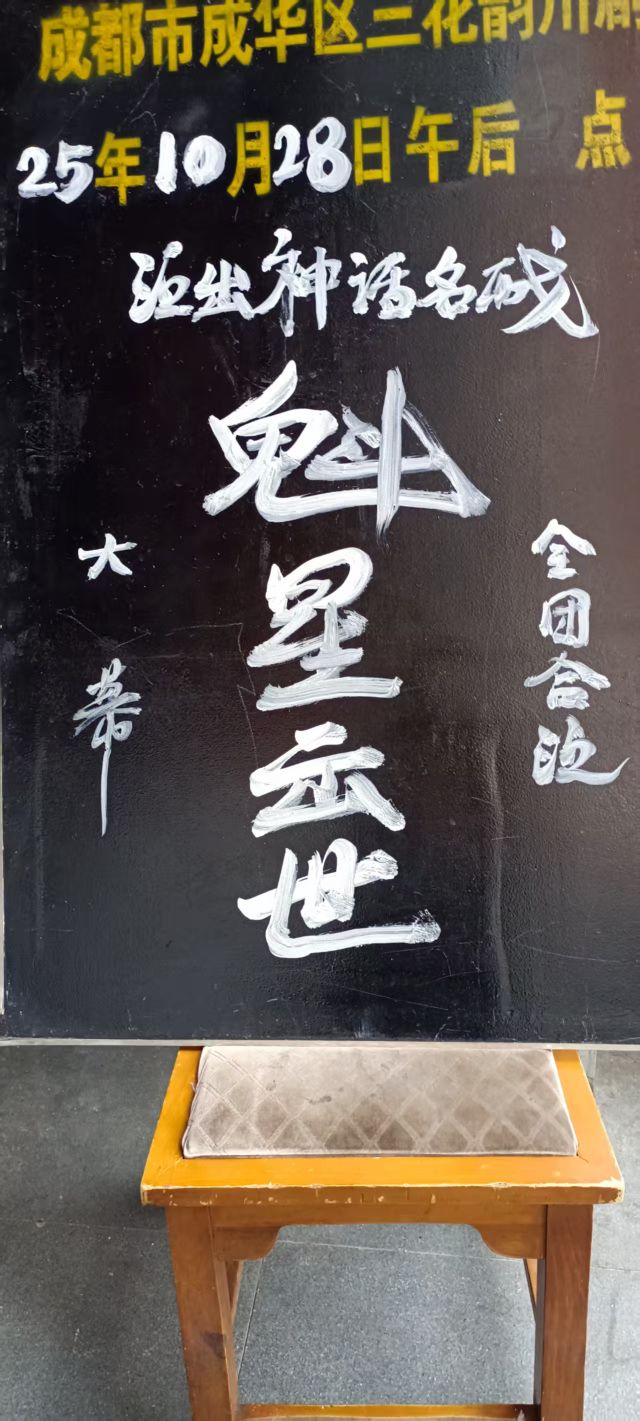 成都市成华区三花韵川剧
25年10月28日午后 点
演出神话名戏
魁星云世
大幕
全团合演